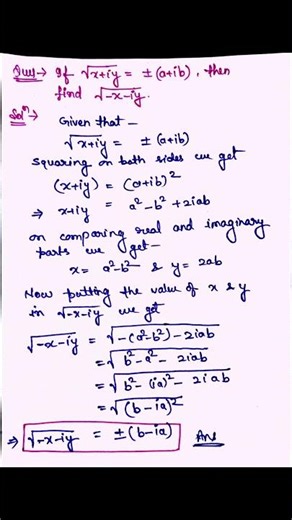 Ques→ If √x+iy = ±(a+ib), then
find √-x-iy.
Solⁿ→ Given that -
√x+iy = ±(a+ib)
Squaring on both sides we get
(x+iy) = (a+ib)²
⇒ x+iy = a²-b²+2iab
on comparing real and imaginary
parts we get -
x= a²-b² & y= 2ab
Now putting the value of x & y
in √-x-iy we get
√-x-iy = √-(a²-b²)-2iab
= √b²-a²-2iab
= √b²-(ia)²-2iab
= √(b-ia)²
⇒ √-x-iy = ±(b-ia) Ans